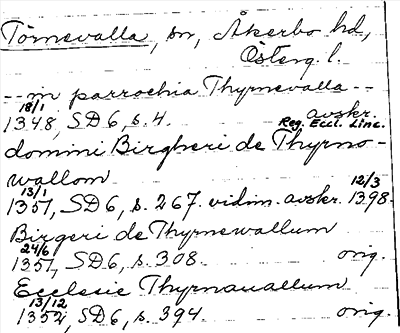 Törnevalla, sn, Åkerbo hd,
Österg. l.
-- in parrochia Thyrnevalla --
18/1 avskr.
1348, SD 6, s. 4. Reg. Eccl. Linc.
domini Birgheri de Thyrno-
wallom
13/1 12/3
1351, SD 6, s. 267. vidim. avskr. 1398.
Birgeri de Thyrnewallum
24/6
1351, SD 6, s. 308. orig.
Ecclesie Thyrnauallum
13/12
1352, SD 6, s. 394. orig.